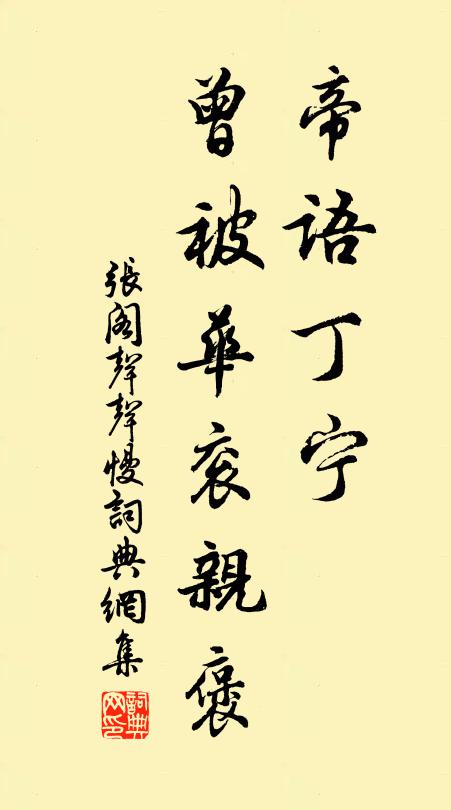 帝语丁宁
曾被華衮親褒
張阁聲聲慢詞典網集
詞典网印